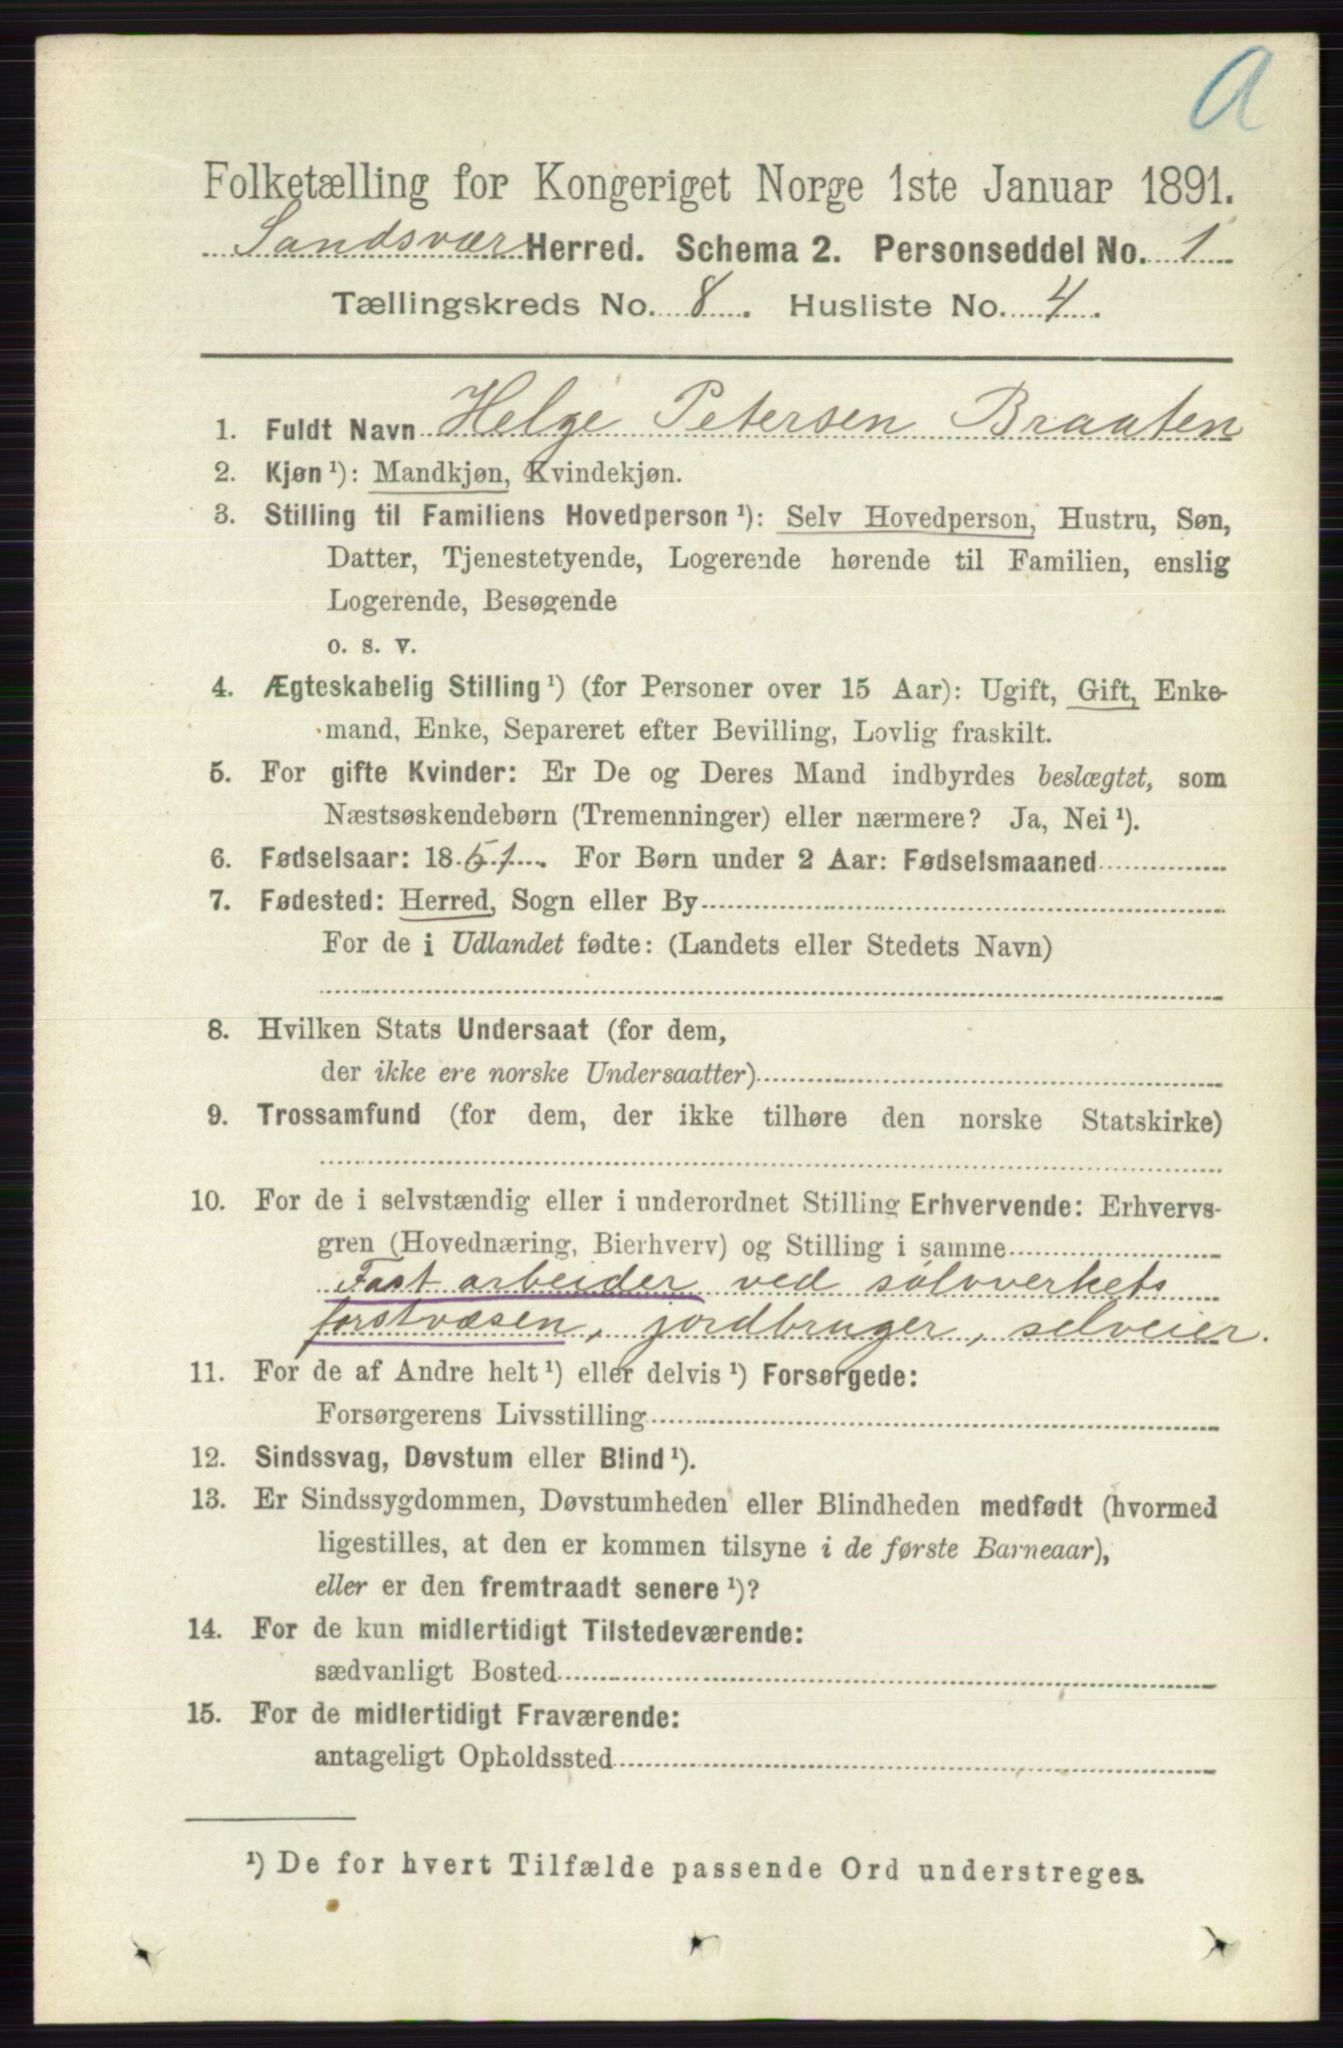 A
Folketælling for Kongeriget Norge 1ste Januar 1891.
Sandsvær Herred. Schema 2. Personseddel No. 1
Tællingskreds No. 8. Husliste No. 4.
1. Fuldt Navn Helge Petersen Braaten
2. Kjøn ¹): Mandkjøn, Kvindekjøn.
3. Stilling til Familiens Hovedperson ¹): Selv Hovedperson, Hustru, Søn,
Datter, Tjenestetyende, Logerende hørende til Familien, enslig
Logerende, Besøgende
o. s. v.
4. Ægteskabelig Stilling ¹) (for Personer over 15 Aar): Ugift, Gift, Enke-
mand, Enke, Separeret efter Bevilling, Lovlig fraskilt.
5. For gifte Kvinder: Er De og Deres Mand indbyrdes beslægtet, som
Næstsøskendebørn (Tremenninger) eller nærmere? Ja, Nei ¹).
6. Fødselsaar: 1851. For Børn under 2 Aar: Fødselsmaaned
7. Fødested: Herred, Sogn eller By
For de i Udlandet fødte: (Landets eller Stedets Navn)
8. Hvilken Stats Undersaat (for dem,
der ikke ere norske Undersaatter)
9. Trossamfund (for dem, der ikke tilhøre den norske Statskirke)
10. For de i selvstændig eller i underordnet Stilling Erhvervende: Erhvervs-
gren (Hovednæring, Bierhverv) og Stilling i samme
Fast arbeider ved sølvverkets
forstvæsen, jordbruger, selveier.
11. For de af Andre helt ¹) eller delvis ¹) Forsørgede:
Forsørgerens Livsstilling
12. Sindssvag, Døvstum eller Blind ¹).
13. Er Sindssygdommen, Døvstumheden eller Blindheden medfødt (hvormed
ligestilles, at den er kommen tilsyne i de første Barneaar),
eller er den fremtraadt senere ¹)?
14. For de kun midlertidigt Tilstedeværende:
sædvanligt Bosted
15. For de midlertidigt Fraværende:
antageligt Opholdssted
¹) De for hvert Tilfælde passende Ord understreges.